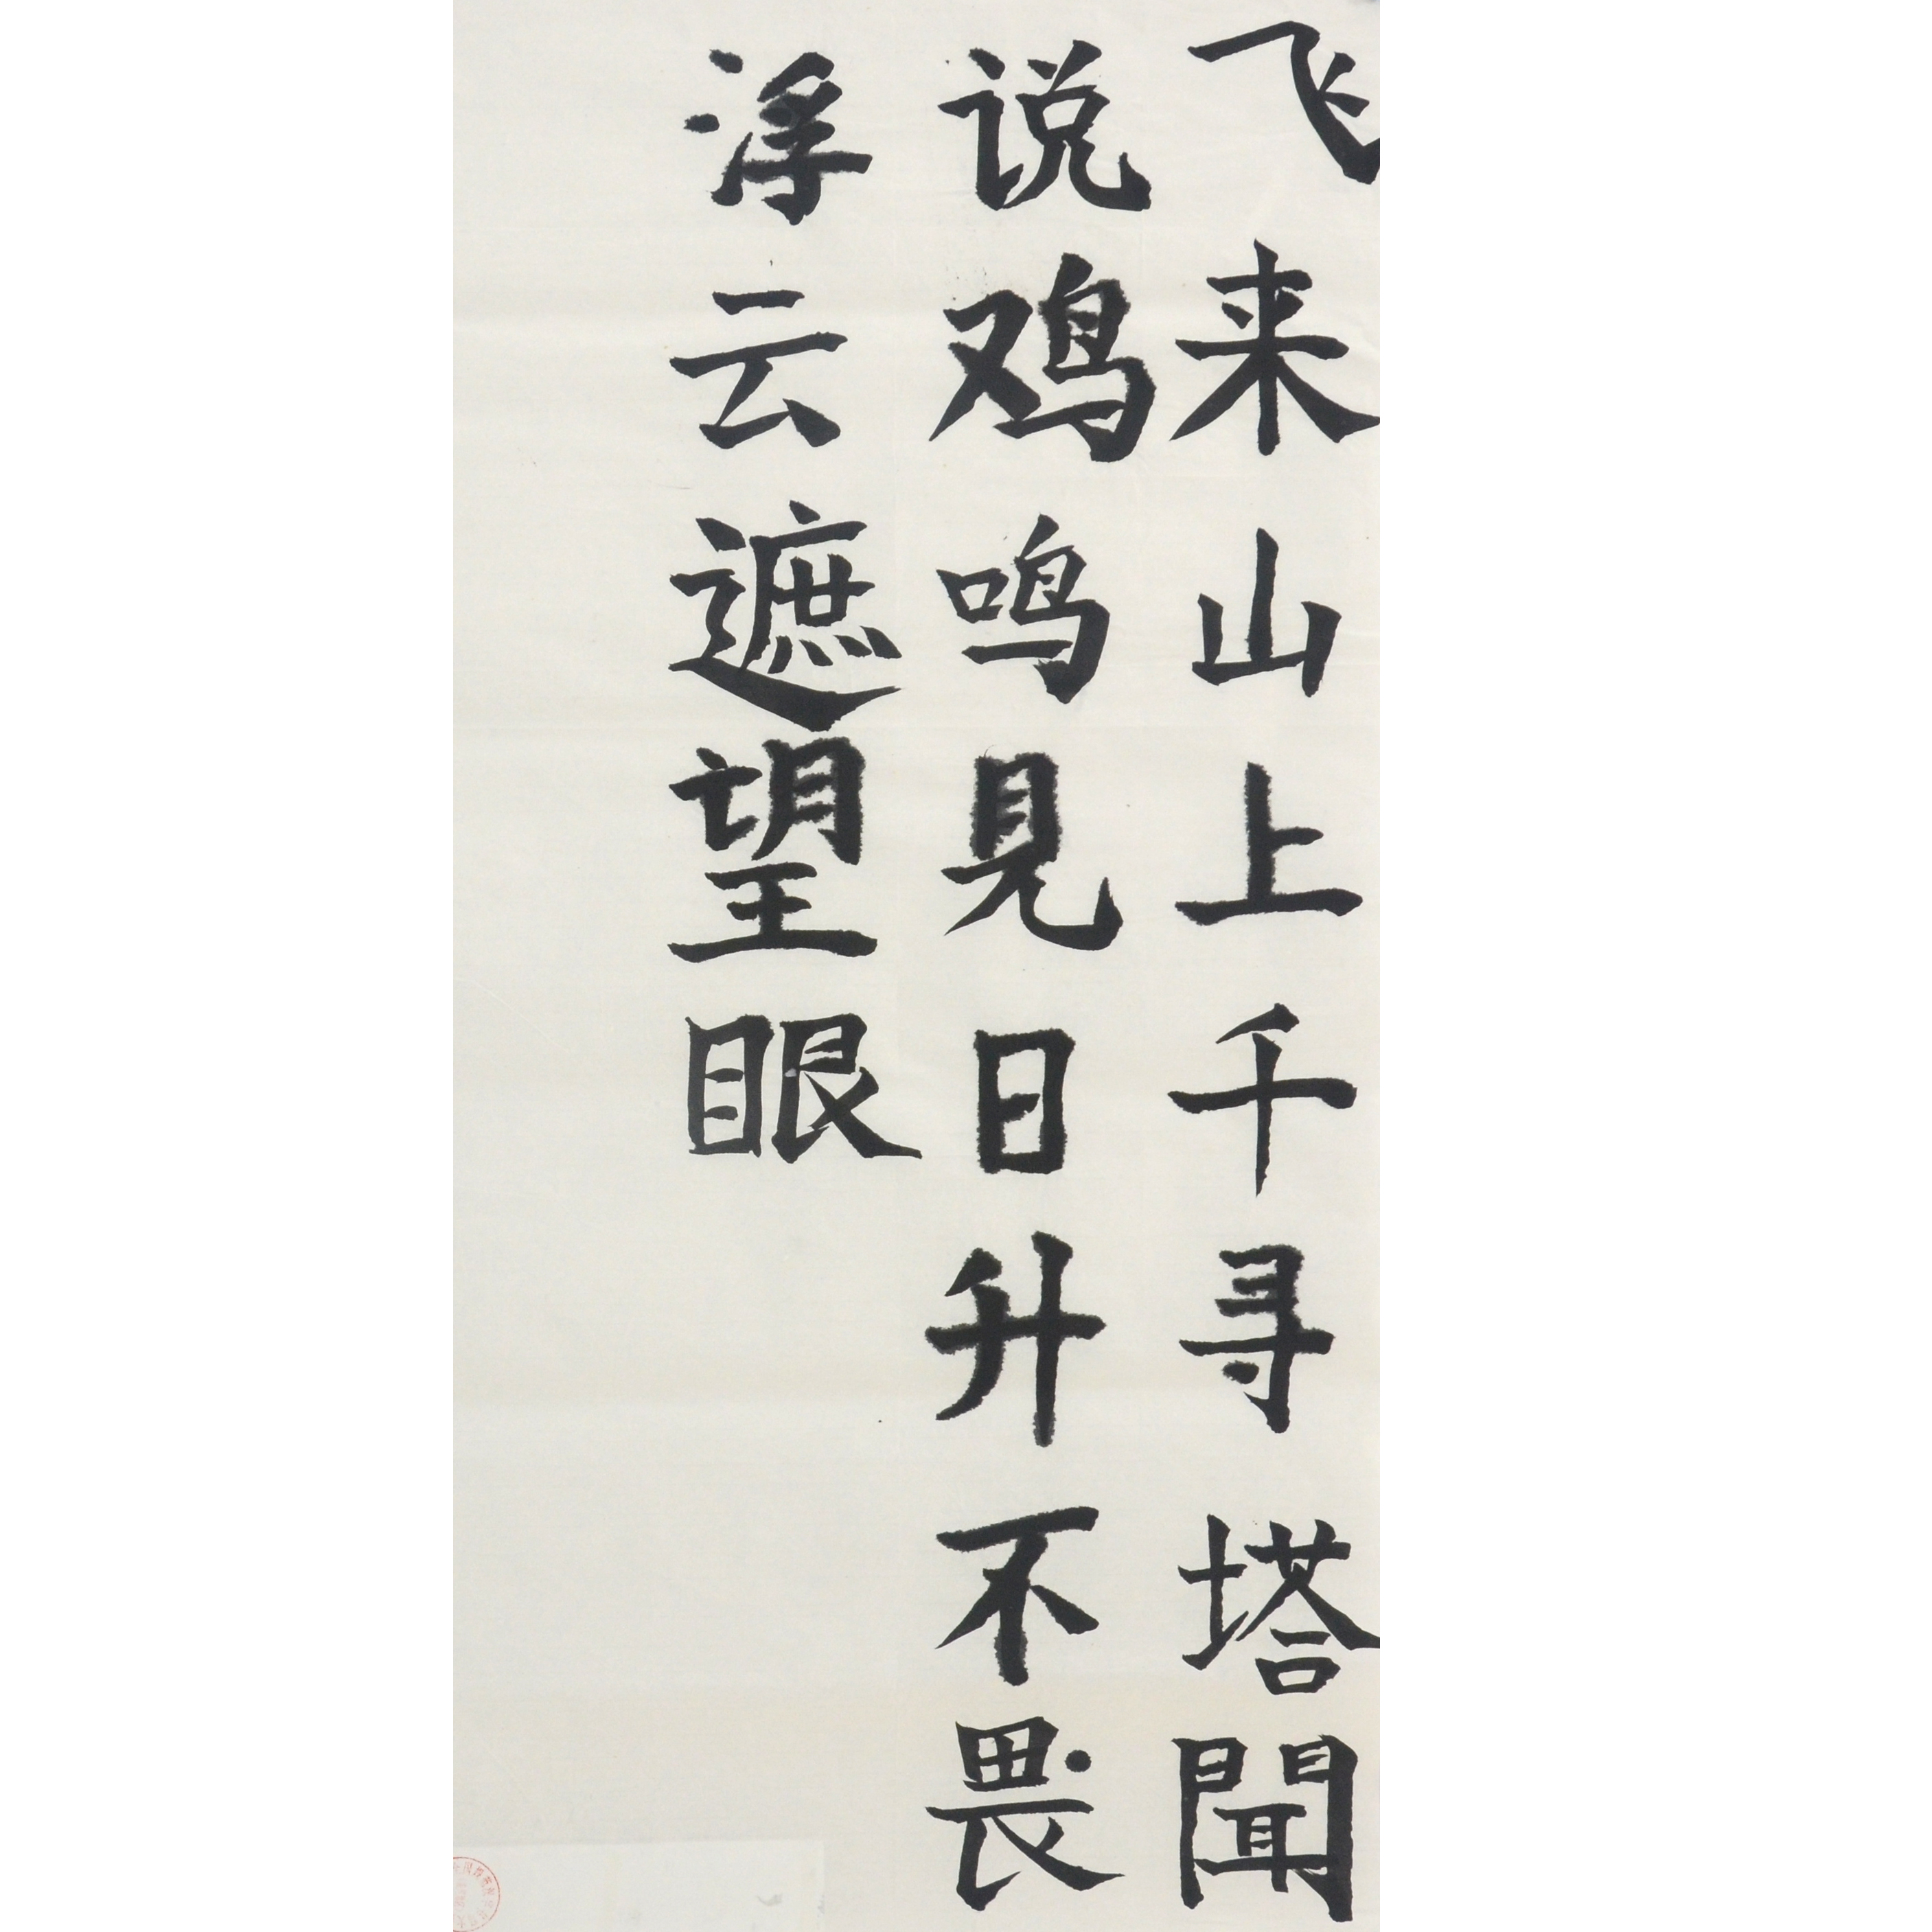 飞来山上千寻塔聞
说鸡鸣見日升不畏
浮云遮望眼